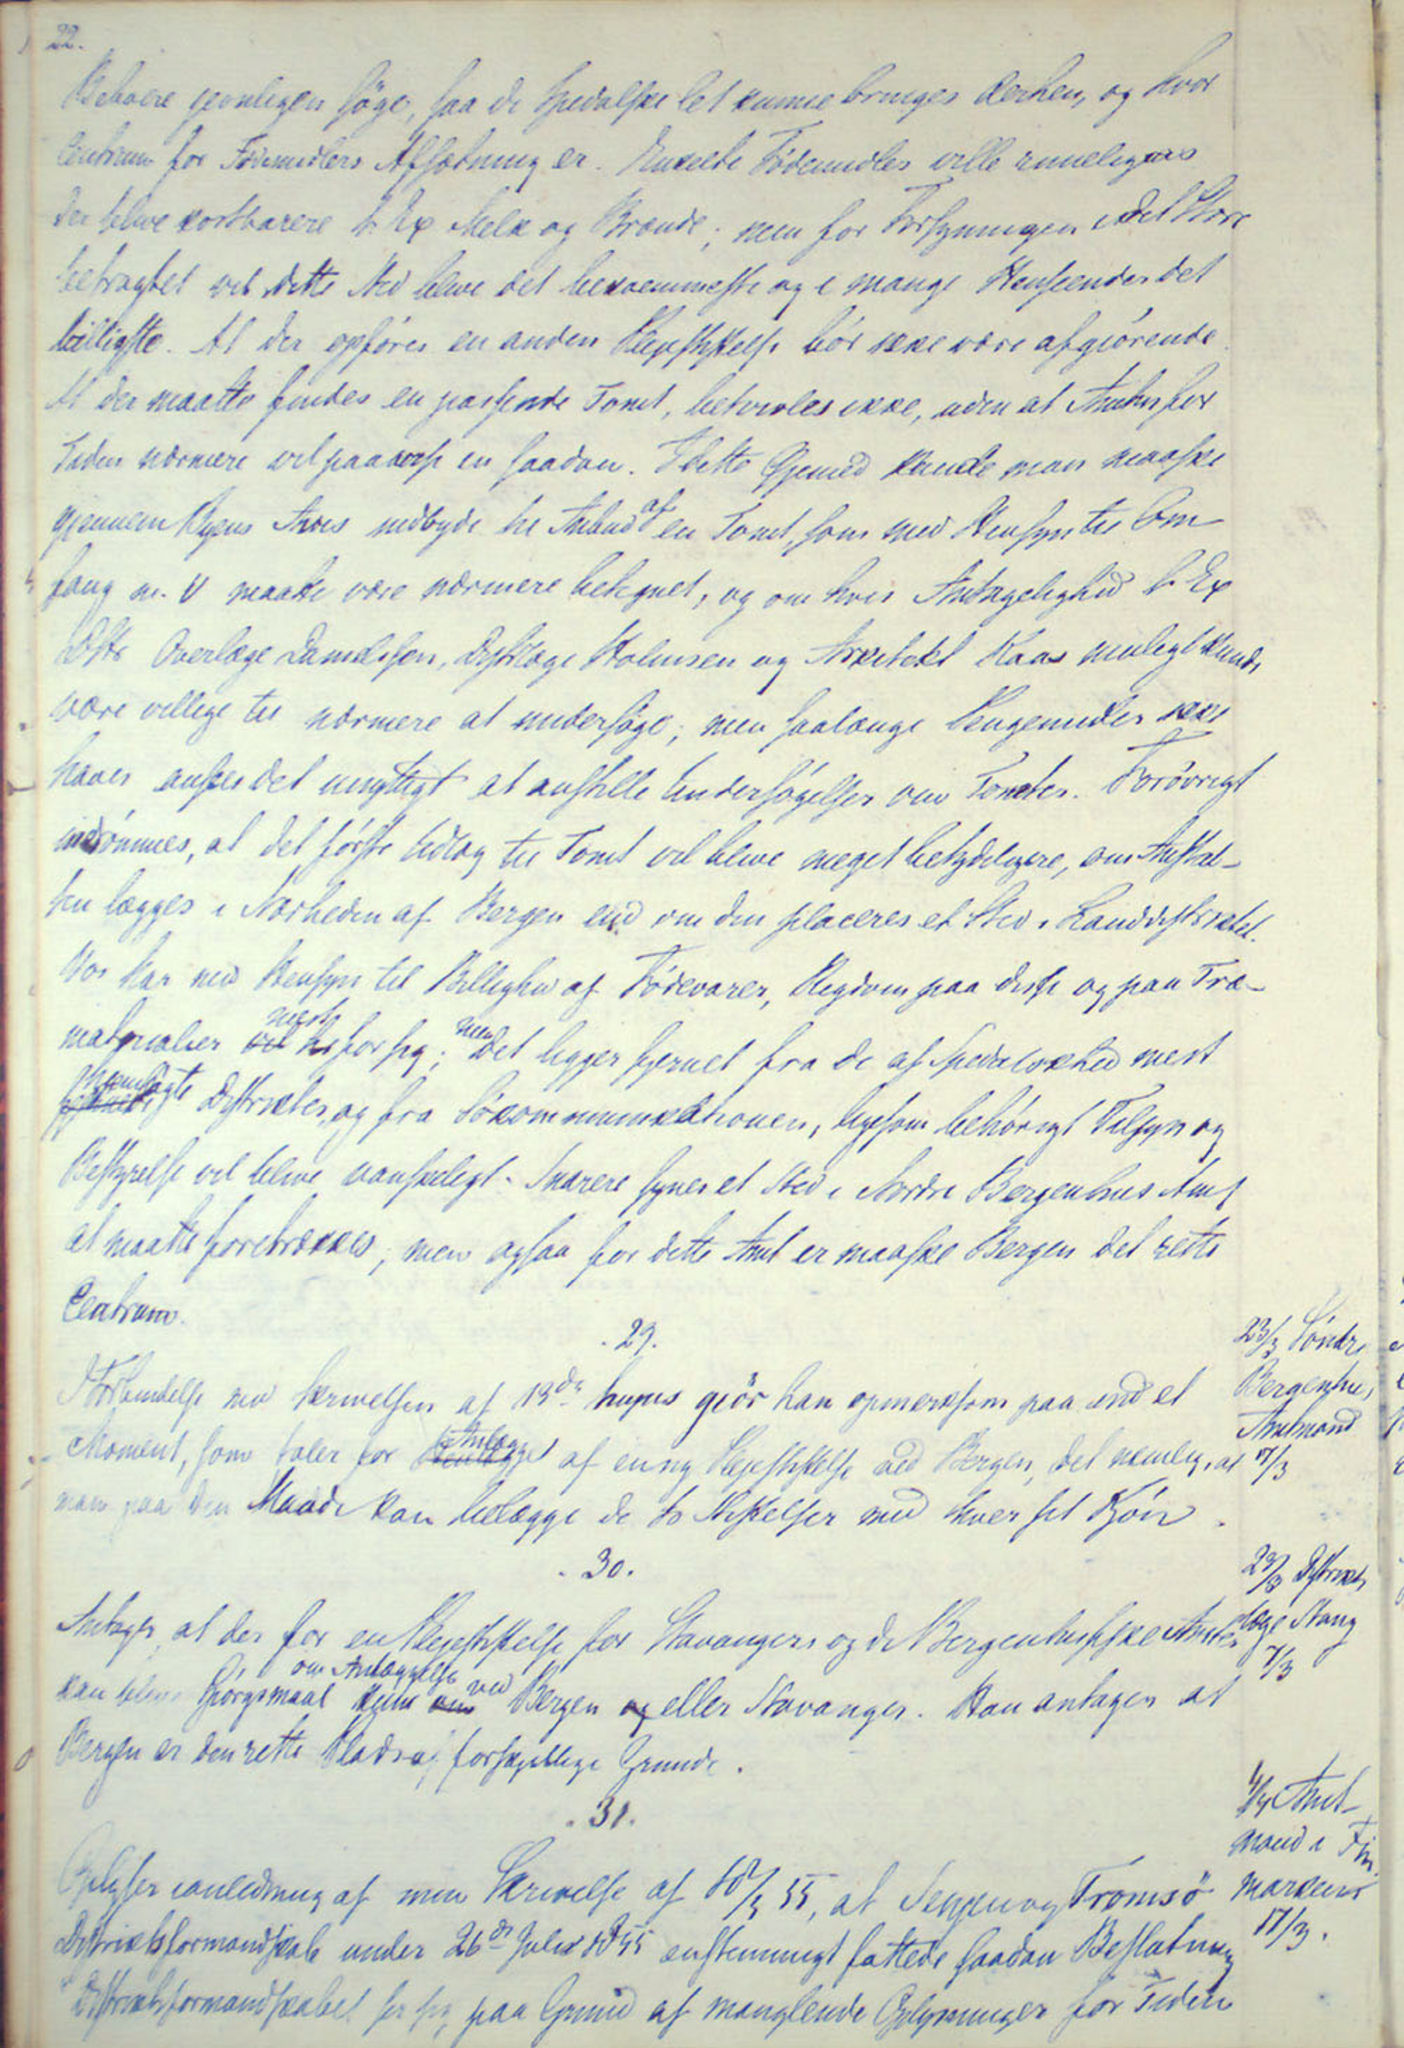 22.
Beboere jevnligen søge, saa de Spedalske let kunne bringes derhen, og hvor
Centrum for Fødemidlers Afsætning er. Enkelte Fødemidler ville rimeligvis
der blive kostbarere t. Ex Melk og Brænde; men for Forsyningen i det Hele
betragtet vil dette Sted blive det bekvemmeste og i mange Henseender det
billigste. At der opføres en anden Pleiestiftelse bør ikke være afgiørende.
At der maatte findes en passende Tomt, betvivles ikke, uden at Amtet for
Tiden nærmere vil paavise en saadan. I dette Øjemed kunde man maaske
gjennem Byens Avis indbyde til Anbud af en Tomt, som med Hensyn til Om-
fang m. V maatte være nærmere betegnet, og om hvis Antagelighed t. Ex
Overlæge Danielssen, Distrlæge Holmsen og Arkitekt Kaas muligt kunde
være villige til nærmere at undersøge; men saalænge Pengemidler ikke
haves ansees det unyttigt at anstille Undersøgelser om Tomter. Forøvrigt
indrømmes, at det første Udlæg til Tomt vil blive meget betydeligere, om Anstal-
ten lægges i Nærheden af Bergen end om den placeres et Sted i Landdistriktet.
Vos har med Hensyn til Billighed af Fødevarer, Rigdom paa disse og paa Træ-
materialier mest for sig; men det ligger fjernet fra de af Spedalskhed mest
hjemsøgte Distrikter, og fra Søkommunikationen, ligesom behørigt Tilsyn og
Bestyrelse vil blive vanskeligt. Snarere synes et Sted i Nordre Bergenhus Amt
at maatte foretrækkes; men ogsaa for dette Amt er maaske Bergen det rette
Centrum.
. 29.
23/3 Søndre
Bergenhus
Amtmand
17/3
I Forbindelse med Skrivelsen af 13de hujus giør han opmerksom paa end et
Moment, som taler for Anlægget af en ny Pleiestiftelse ved Bergen, det nemlig, at
man paa den Maade kan belægge de to Stiftelser med hver sit Kjøn.
. 30.
23/3 Distrikts
læge Stang
7/3
Antager, at der for en Pleiestiftelse for Stavangers og de Bergenhusiske Amter
kan blive Spørgsmaal kun om Anlæggelse ved Bergen eller Stavanger. Han antager at
Bergen er den rette Plads af forskjellige Grunde.
. 31.
4/4 Amt-
mand i Fin-
markens
17/3.
Oplyser i anledning af min Skrivelse af 10/3 55, at Senjen og Tromsø
Distriktsformandskab under 26de Juli 1855 enstemmigt fattede saadan Beslutning
"Distriktsformandskabet ser sig paa Grund af manglende Oplysninger for Tiden